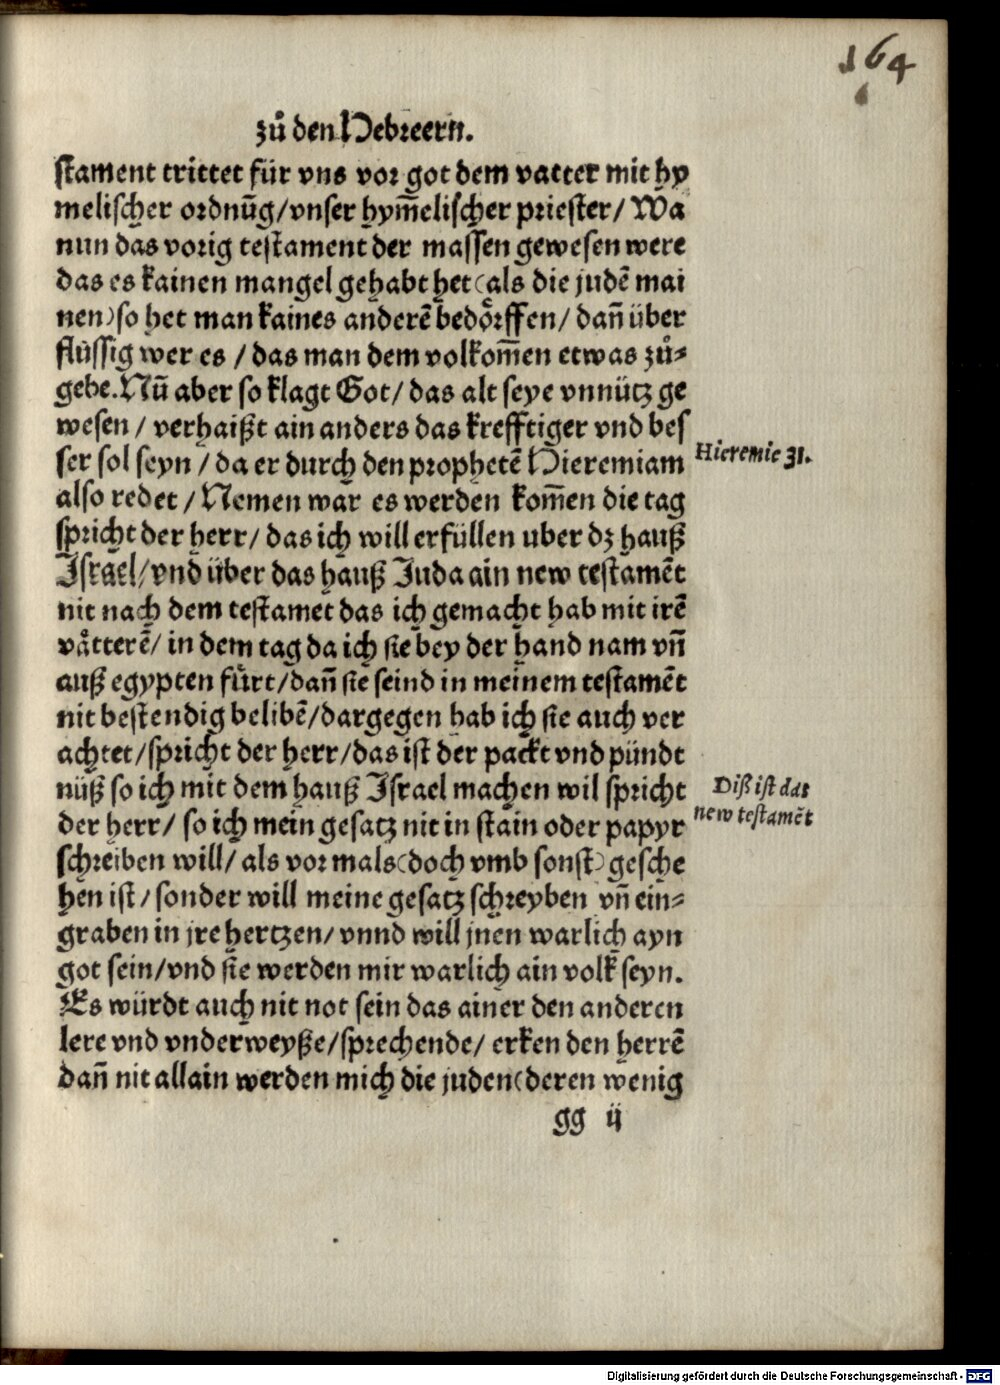 164
zů den Hebreern.
stament trittet für vns vor got dem vatter mit hy
melischer ordnūg/vnser hym̄elischer priester/ Wa
nun das vorig testament der massen gewesen were
das es kainen mangel gehabt het(als die judē mai
nen)so het man kaines anderē bedoͤrffen/ dan̄ über
flüssig wer es / das man dem volkom̄en etwas zů⸗
gebe. Nū aber so klagt Got/ das alt seye vnnütz ge
wesen / verhaißt ain anders das krefftiger vnd bes
ser sol seyn / da er durch den prophetē Hieremiam
Hieremie 31.
also redet / Nemen war es werden kom̄en die tag
spricht der herr/ das ich will erfüllen uber dz hauß
Israel/vnd über das hauß Juda ain new testamēt
nit nach dem testamet das ich gemacht hab mit irē
vaͤtterē/ in dem tag da ich sie bey der hand nam vn̄
auß egypten fürt/dan̄ sie seind in meinem testamēt
nit bestendig belibē/dargegen hab ich sie auch ver
achtet/spricht der herr/das ist der packt vnd pündt
nüß so ich mit dem hauß Israel machen wil spricht
Diß ist das
der herr/ so ich mein gesatz nit in stain oder papyr
new testamēt
schreiben will/ als vor mals(doch vmb sonst)gesche
hen ist/sonder will meine gesatz schreyben vn̄ ein⸗
graben in jre hertzen/ vnnd will jnen warlich ayn
got sein/vnd sie werden mir warlich ain volk seyn.
Es würdt auch nit not sein das ainer den anderen
lere vnd vnderweyße/sprechende/ erken den herrē
dan̄ nit allain werden mich die juden(deren wenig
gg ij
Digitalisierung gefördert durch die Deutsche Forschungsgemeinschaft - DFG